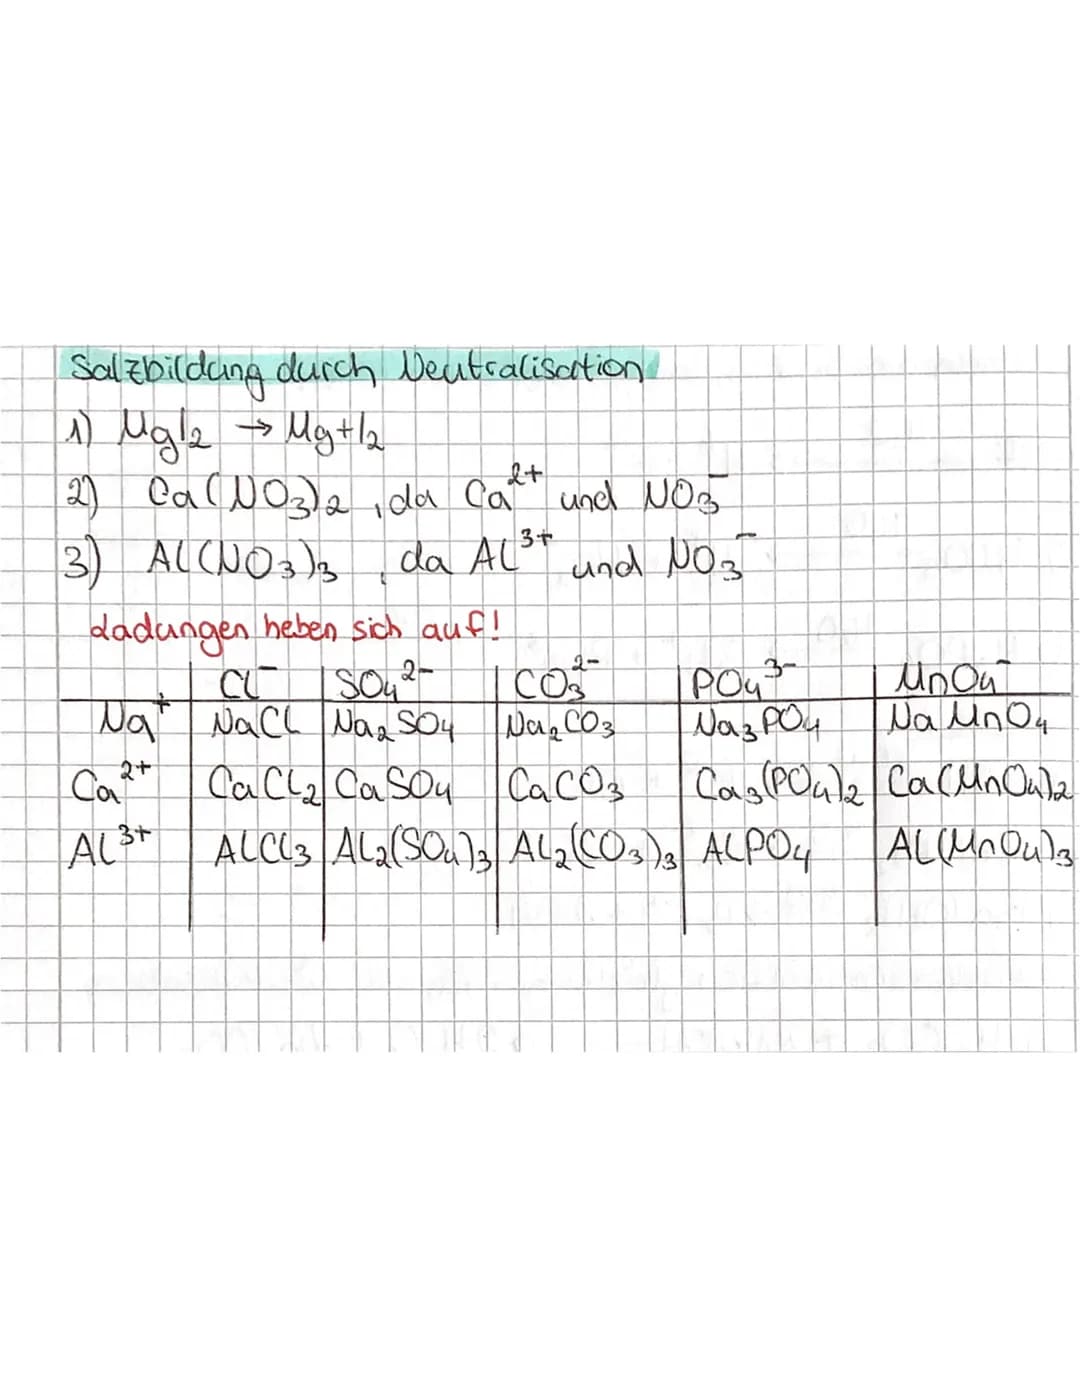 Salzbildung durch Neutralisation
1) MgI2 → Mg+I2
2) Ca(NO3)2, da Ca²⁺ und NO3⁻
3) Al(NO3)3, da Al³⁺ und NO3⁻
Ladungen heben sich auf!
Cl⁻ SO4²⁻ CO3²⁻ PO4³⁻ MnO4⁻
Na⁺ NaCl Na2SO4 Na2CO3 Na3PO4 NaMnO4
Ca²⁺ CaCl2 CaSO4 CaCO3 Ca3(PO4)2 Ca(MnO4)2
Al³⁺ AlCl3 Al2(SO4)3 Al2(CO3)3 AlPO4 Al(MnO4)3